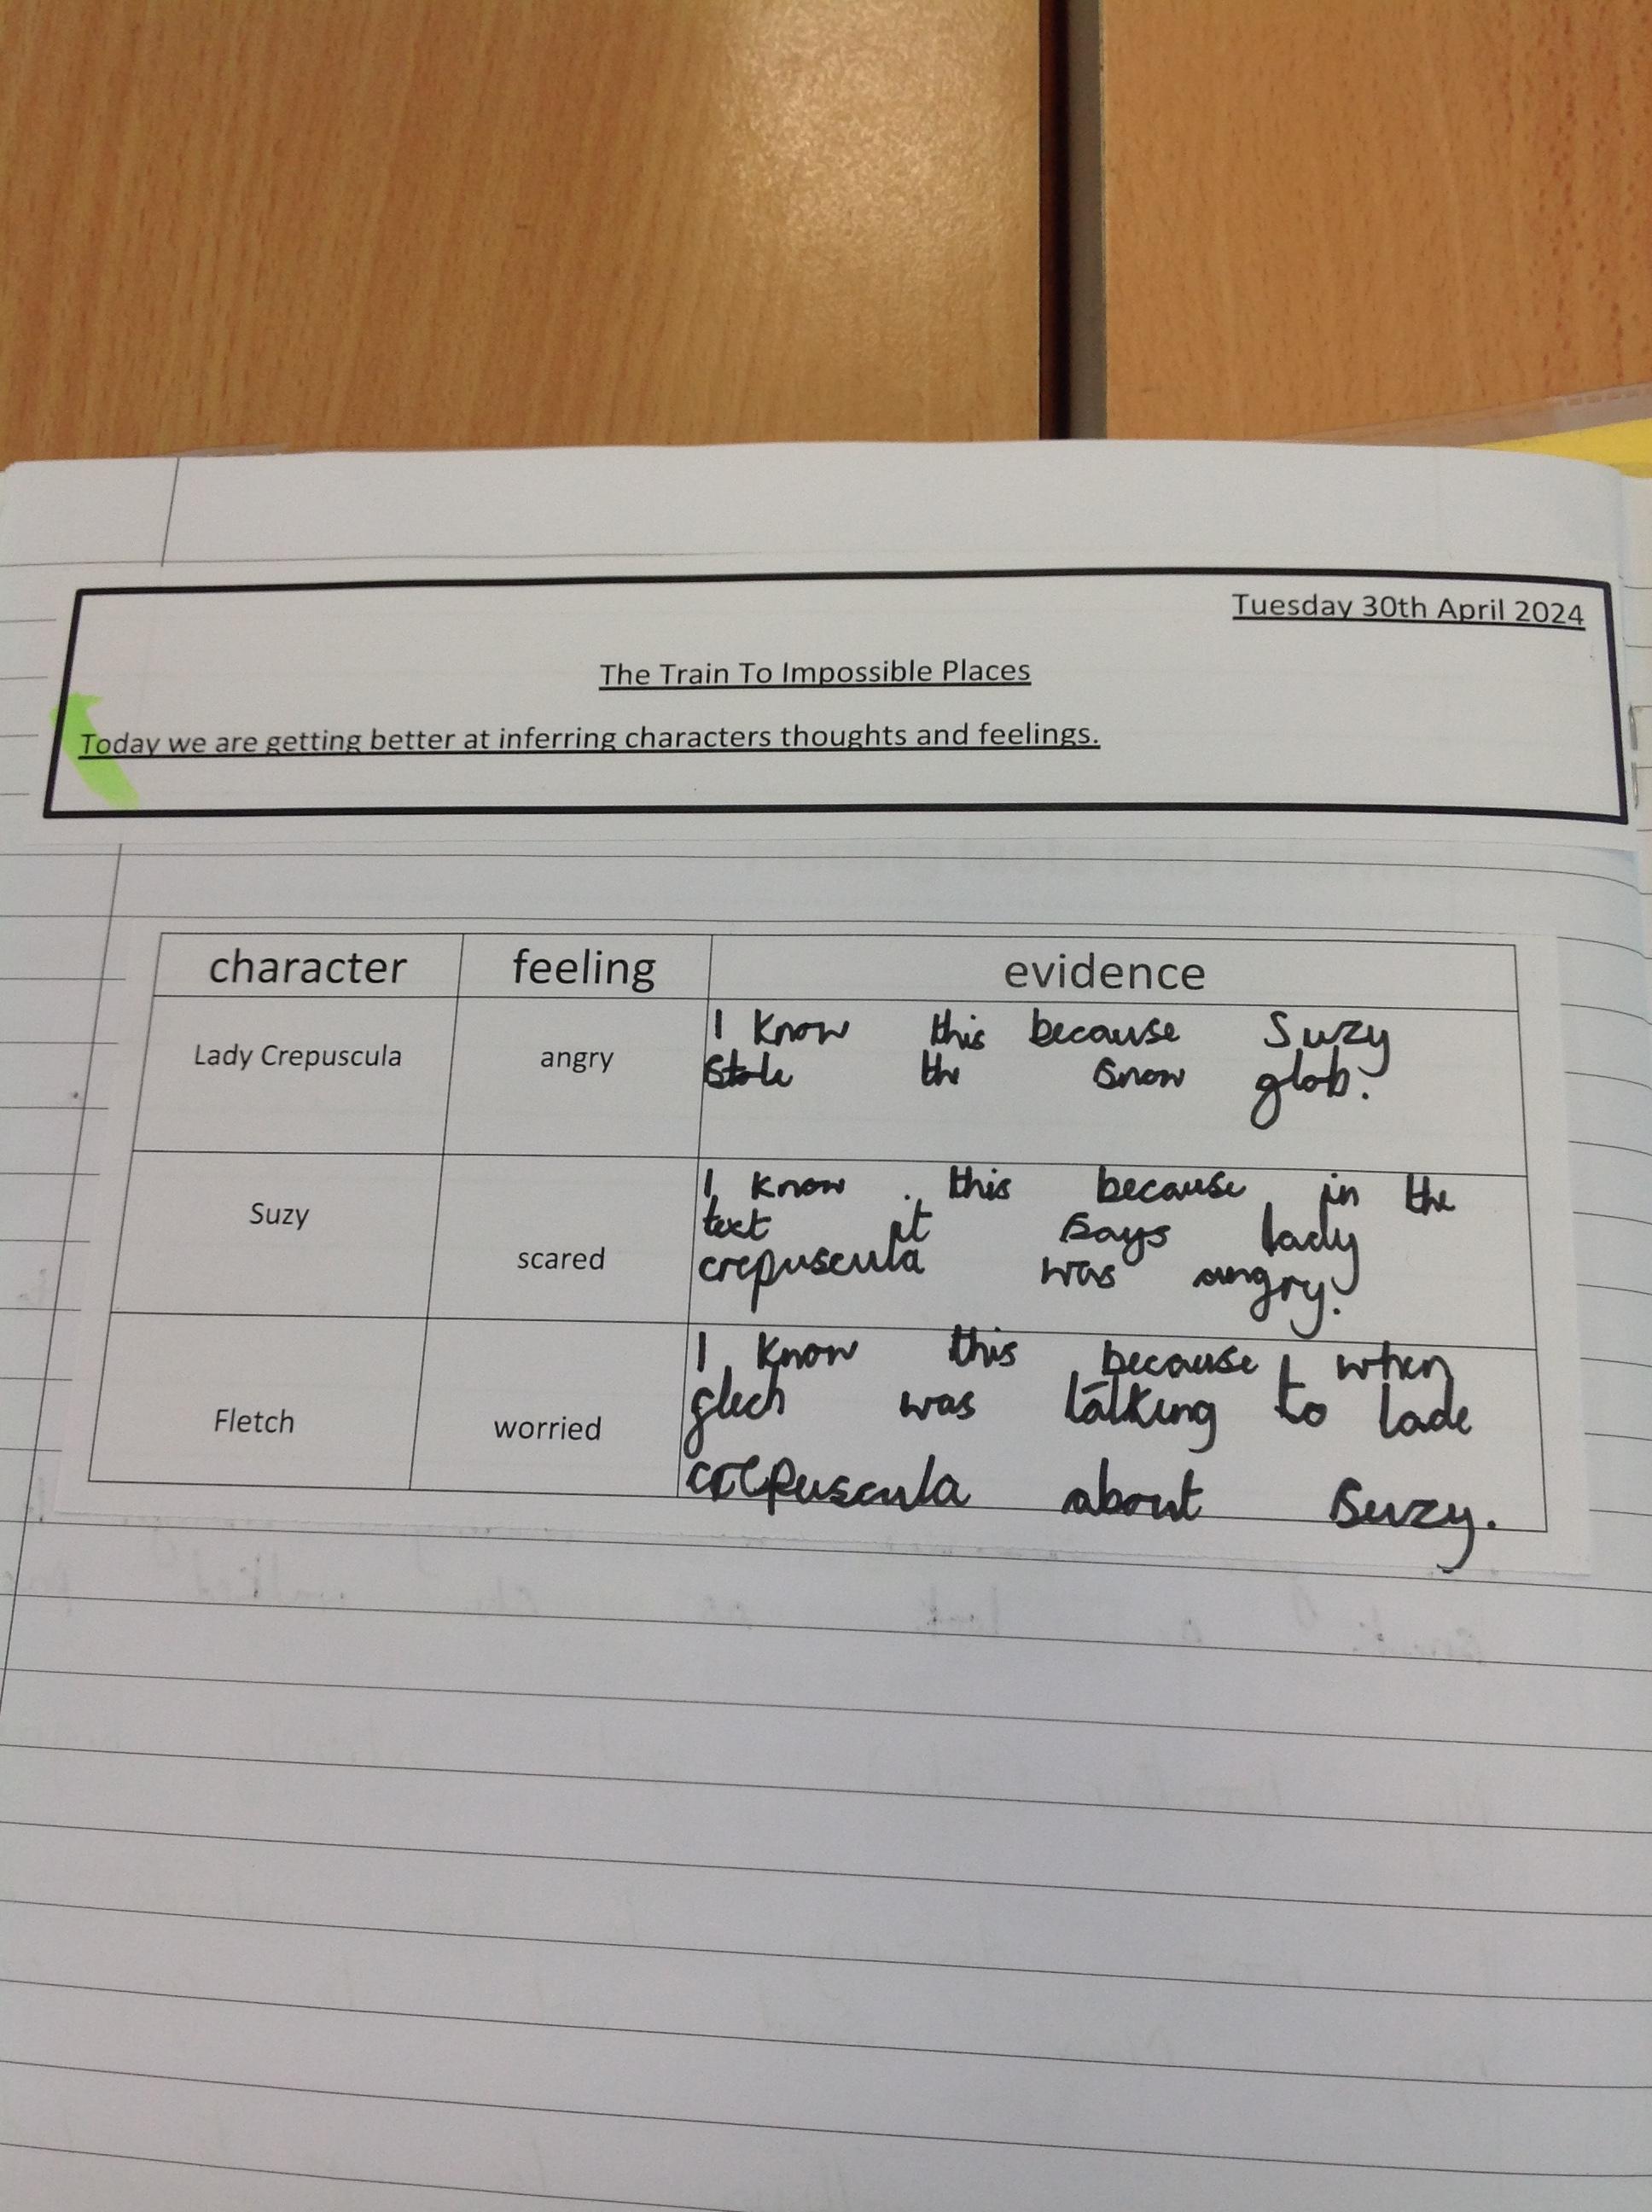 Tuesday 30th April 2024
The Train To Impossible Places
Today we are getting better at inferring characters thoughts and feelings.
character feeling evidence
Lady Crepuscula angry
I know this because Suzy
stole the snow glob.
Suzy scared
I know this because in the
text it says lady
crepuscula was angry.
Fletch worried
I know this because when
glech was talking to lade
crepuscula about Suzy.